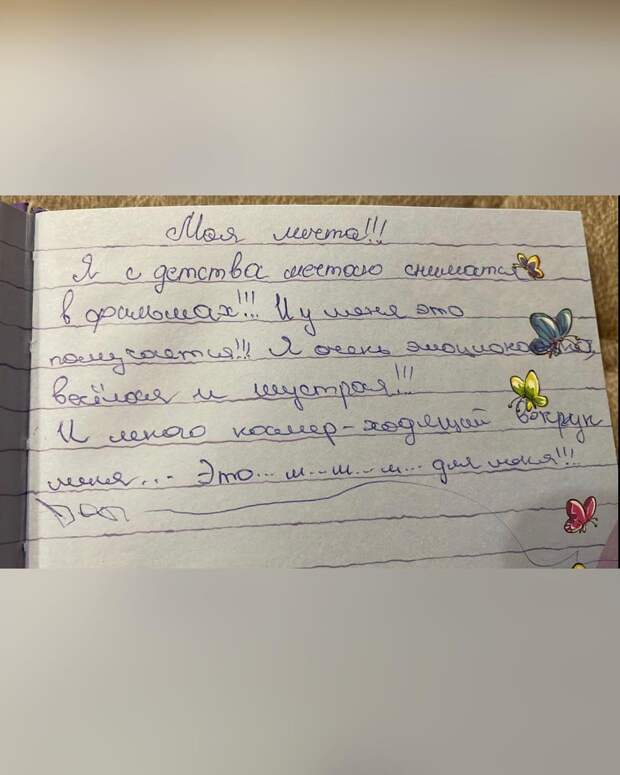 Моя мечта!!!
Я с детства мечтаю сниматся
в фильмах!!! И у меня это
получается!!! Я очень эмоциональная,
весёлая и шустрая!!!
И много камер-ходящий вокрук
меня... Это... м... м... м... для меня!!!